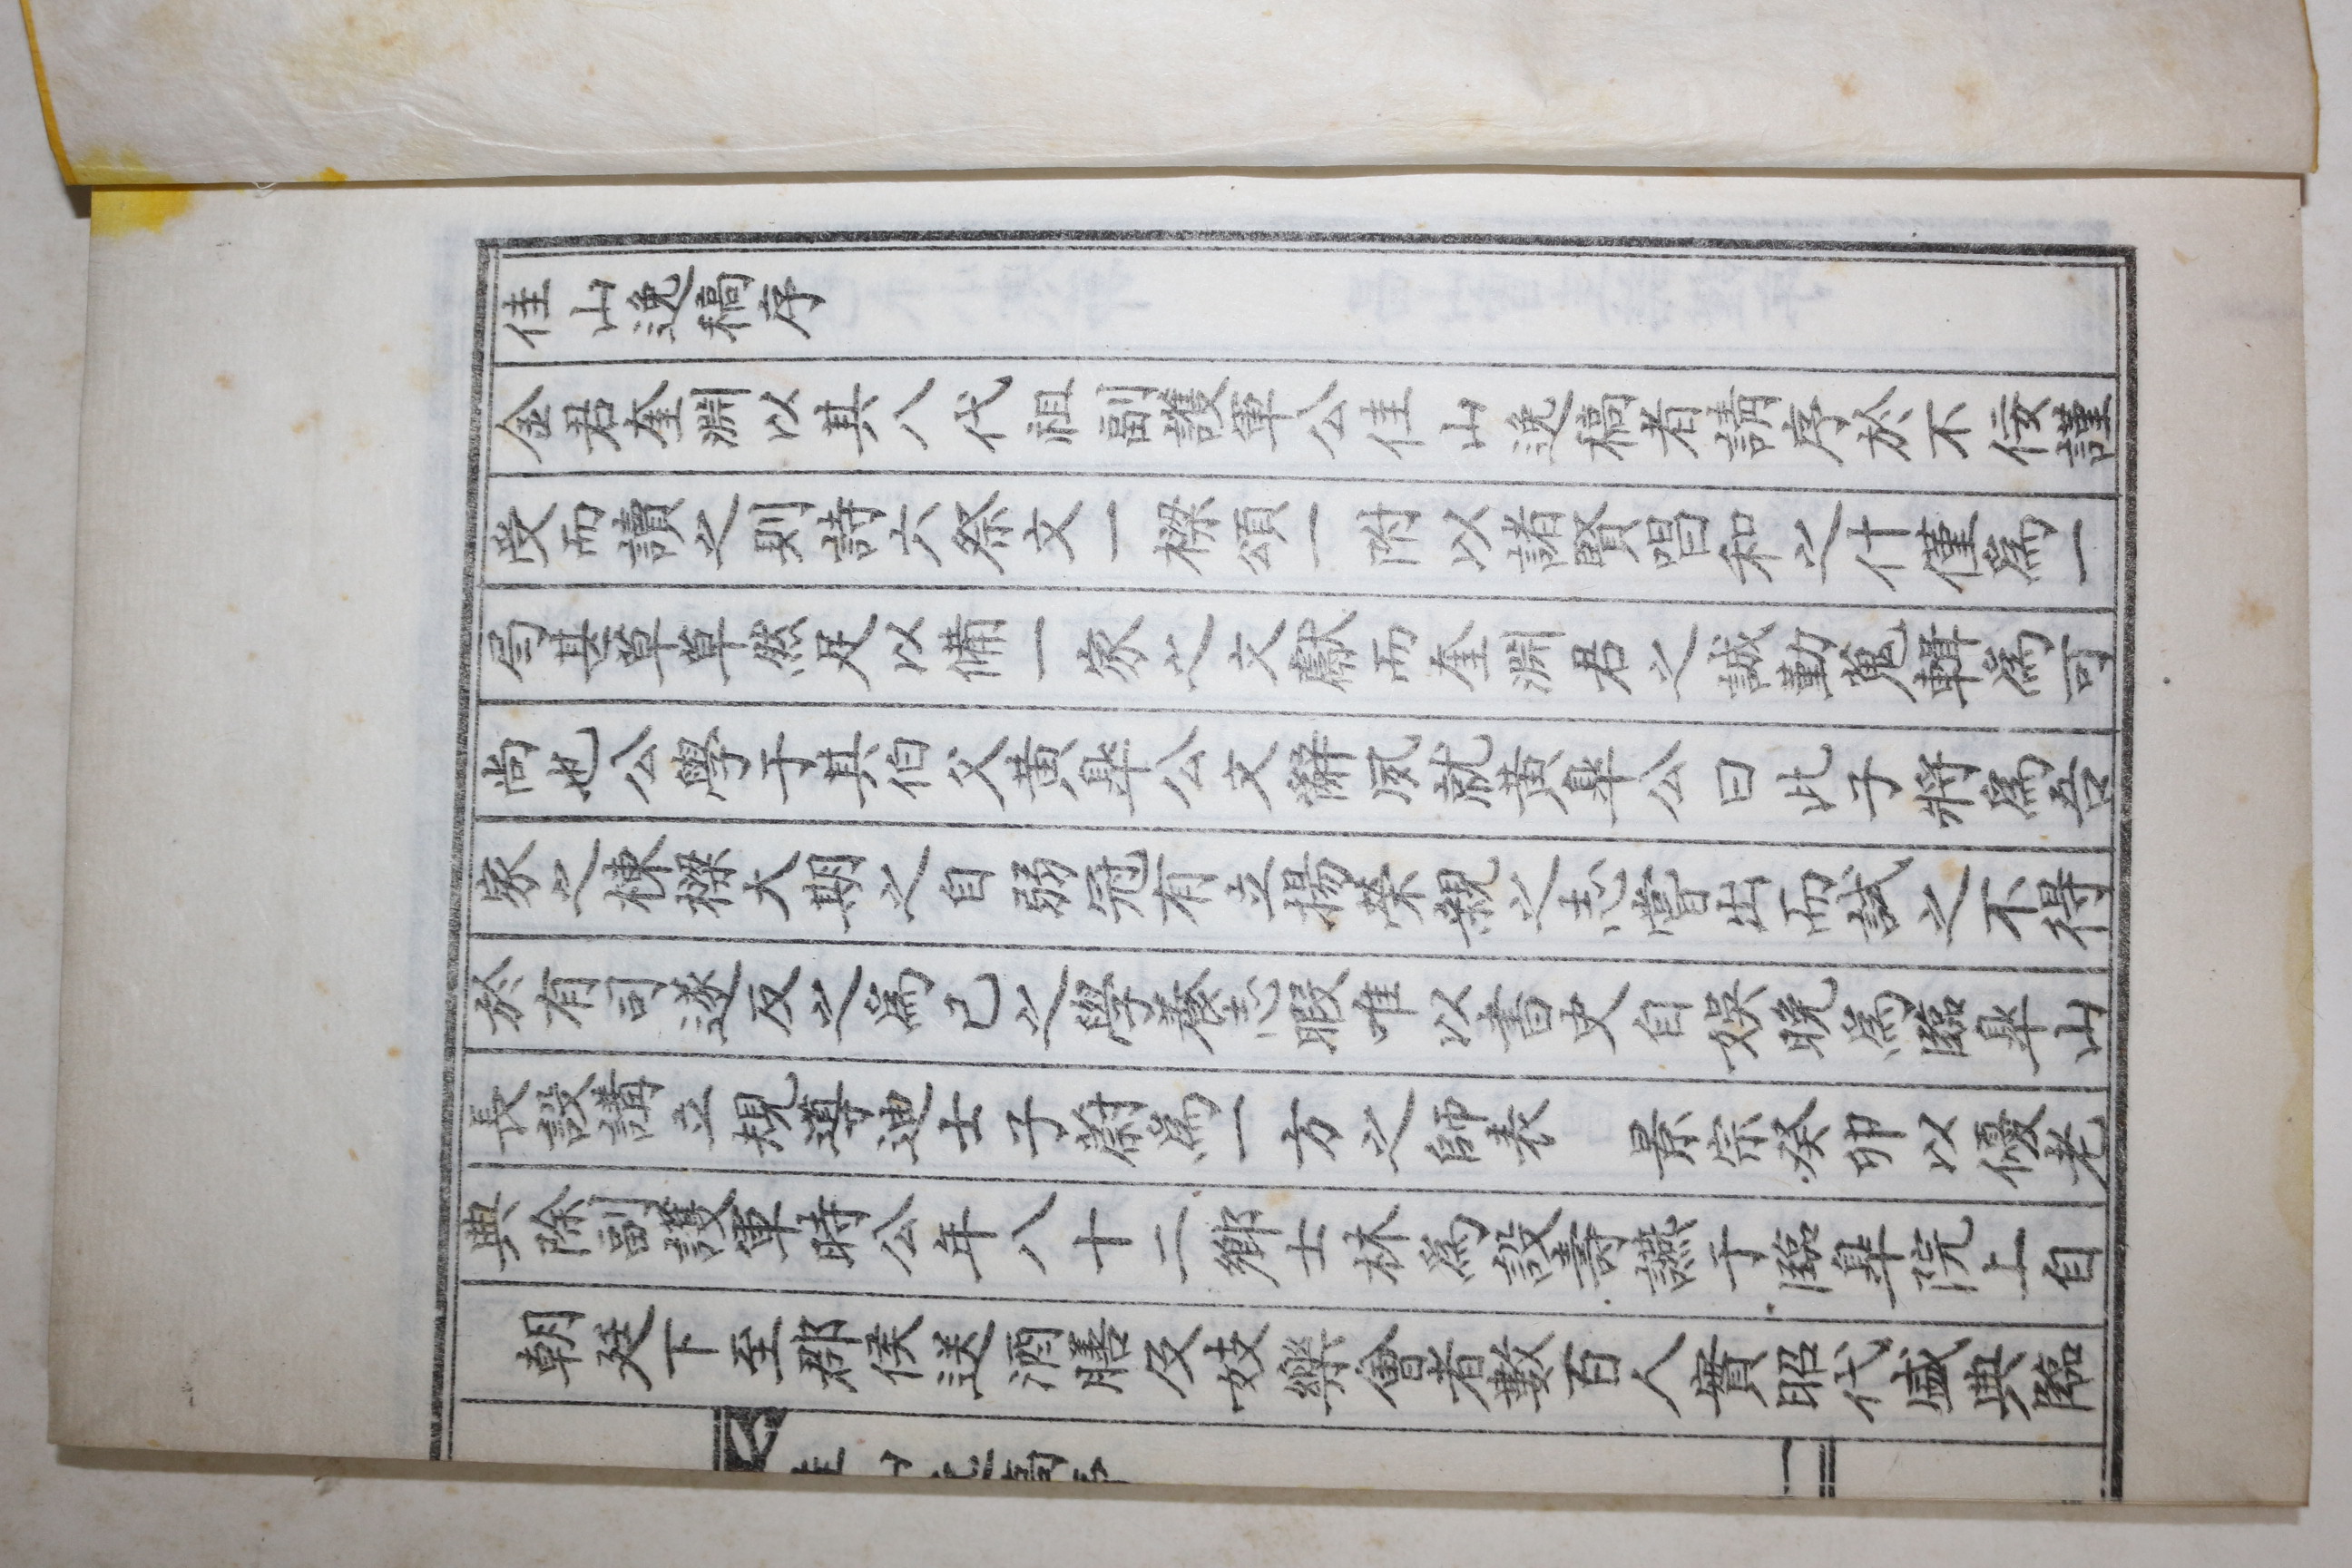 佳山逸稿序
金君奎淵以其八代祖副護軍公佳山逸稿者請序於不佞謹
受而讀之則詩六祭文一樑頌一附以諸賢唱和之什僅爲一
局甚草草然足以備一家之文獻而奎淵君之誠勤蒐輯爲可
尚也公學于其伯父黃皐公文辭夙就黃皐公曰此子將爲吾
家之棟樑大期之自弱冠有立揚榮親之志嘗出而試之不得
於有司遂反之爲己之學養志暇唯以書史自娛晩爲臨皐山
長設講立規導迪士子蔚爲一方之師表 景宗癸卯以優老
典除副護軍時公年八十二鄉士林爲設壽讌于臨皐院上自
朝廷下至郡侯送酒膳及妓樂會者數百人實昭代盛典臨
一